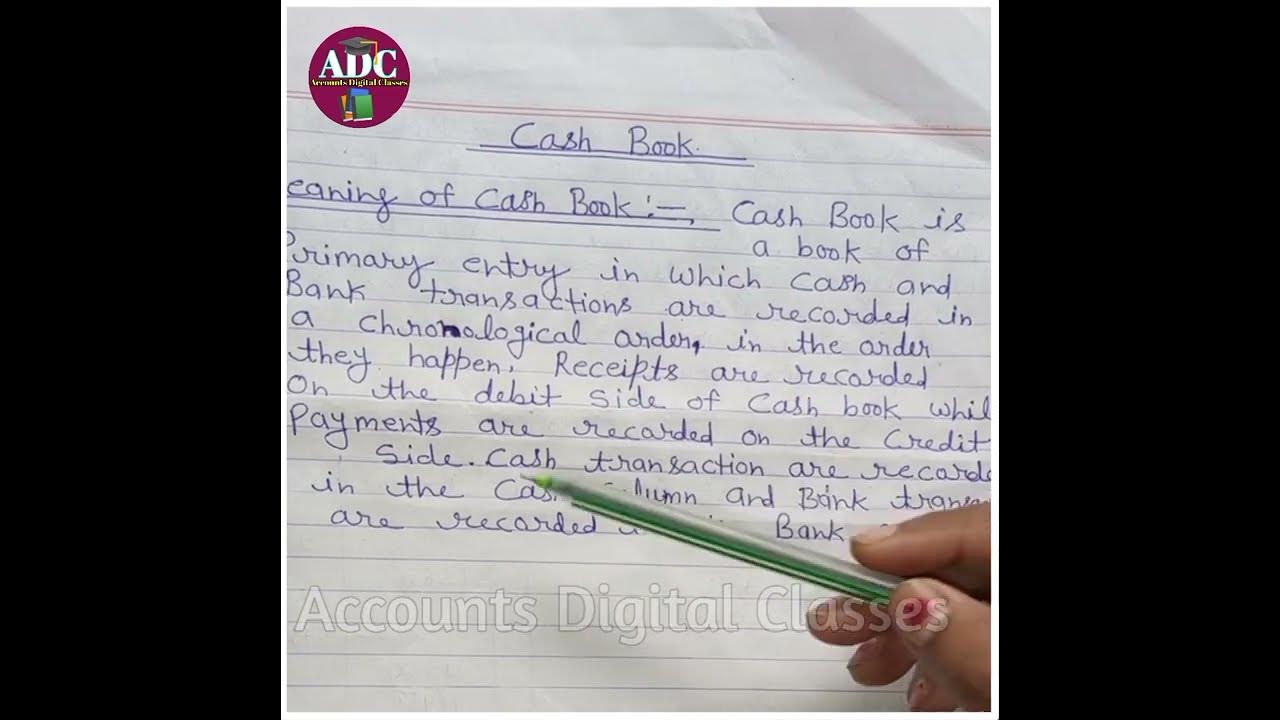 ADC
Accounts Digital Classes
Cash Book.
eaning of Cash Book :-, Cash Book is
a book of
Primary entry in which Cash and
Bank transactions are recorded in
a chronological order, in the order
they happen. Receipts are recorded
On the debit side of Cash book whil
Payments are recorded on the Credit
Side. Cash transaction are record
in the and Bank
are recorded Bank
Accounts Digital Classes